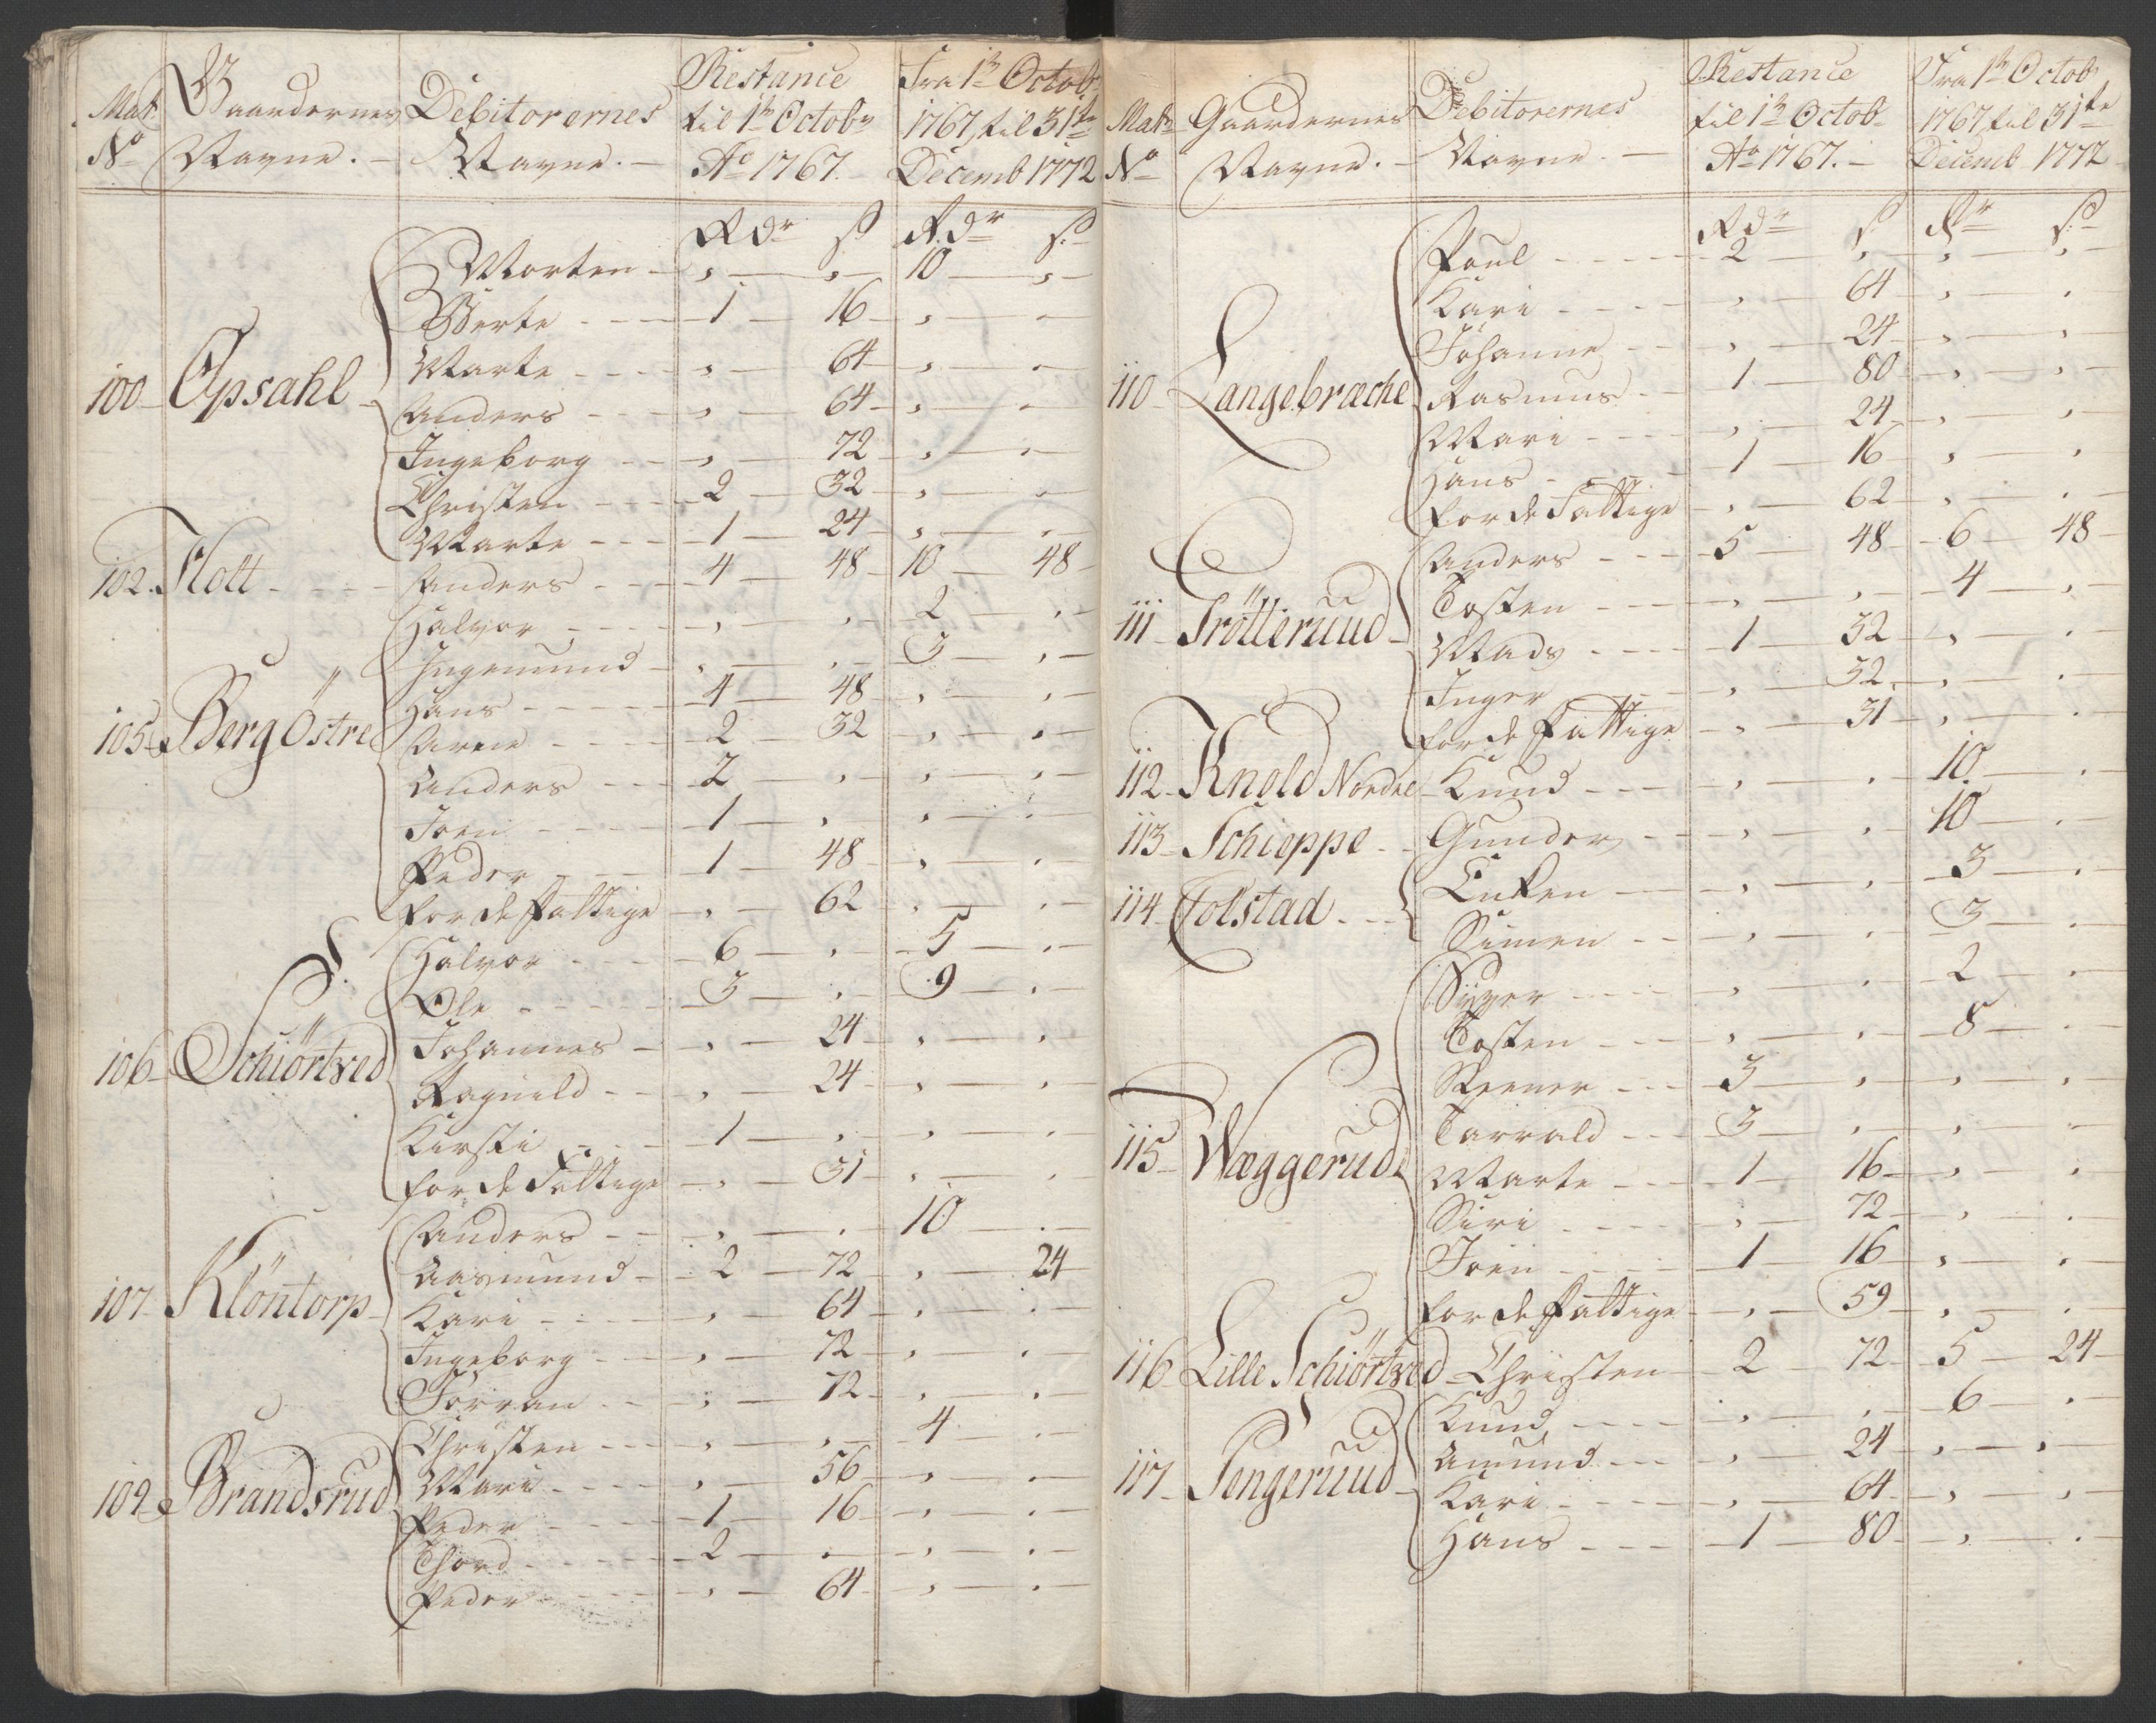 Mat. No Gaardernes Navne. Debitorernes Navne. Restance til 1te Octobr Ao 1767. Fra 1te Octobr 1767, til 31te Decemb 1772
Rdr s Rdr s
100 Opsahl Morten , , 10 ,
Berte 1 16 , ,
Marte , 64 , ,
Anders , 64 , ,
Ingeborg , 72 , ,
Christen 2 32 , ,
Marte 1 24 , ,
102. Flott Anders 4 48 10 48
105 Berg Östre Halvor , , 2 ,
Ingemund , , 3 ,
Hans 4 48 , ,
Arne 2 32 , ,
Anders 2 , , ,
Joen 1 , , ,
Peder 1 48 , ,
for de Fattige , 62 , ,
106 Schiörtved Halvor 6 , 5 ,
Ole 3 , 9 ,
Johannes , 24 , ,
Ragnild , 24 , ,
Kirsti 1 , , ,
for de Fattige , 31 , ,
107 Klöntorp Anders , , 10 ,
Aasmund 2 72 , 24
Kari , 64 , ,
Ingeborg , 72 , ,
Torran , 72 , ,
109 Brandsrud Christen , , 4 ,
Mari , 56 , ,
Peder 1 16 , ,
Thord 2 , , ,
Peder , 64 , ,
Matr No Gaardernes Navne. Debitorernes Navne. Restance til 1te Octob. Ao 1767. Fra 1te Octob 1767, til 31te Decemb 1772
Rdr s Rr s
110 Langebræche Poul 2 , , ,
Kari , 64 , ,
Johanne , 24 , ,
Rasmus 1 80 , ,
Mari , 24 , ,
Hans 1 16 , ,
for de Fattige , 62 , ,
111 Trötteruud Anders 5 48 6 48
Tosten , , 4 ,
Mads 1 32 , ,
Inger , 32 , ,
for de Fattige , 31 , ,
112 Knold Nordre Knud , , 10 ,
113 Schieppe Gunder , , 10 ,
114 Tolstad Enken , , 3 ,
Simen , , 3 ,
115 Wæggerud Syver , , 2 ,
Tosten , , 8 ,
Steener 3 , , ,
Tarrald 3 , , ,
Marte 1 16 , ,
Siri , 72 , ,
Joen 1 16 , ,
for de Fattige , 59 , ,
116 Lille Schiörtved Christen 2 72 5 24
117 Pengeruud Knud , , 6 ,
Amund , 24 , ,
Kari , 64 , ,
Hans 1 80 , ,